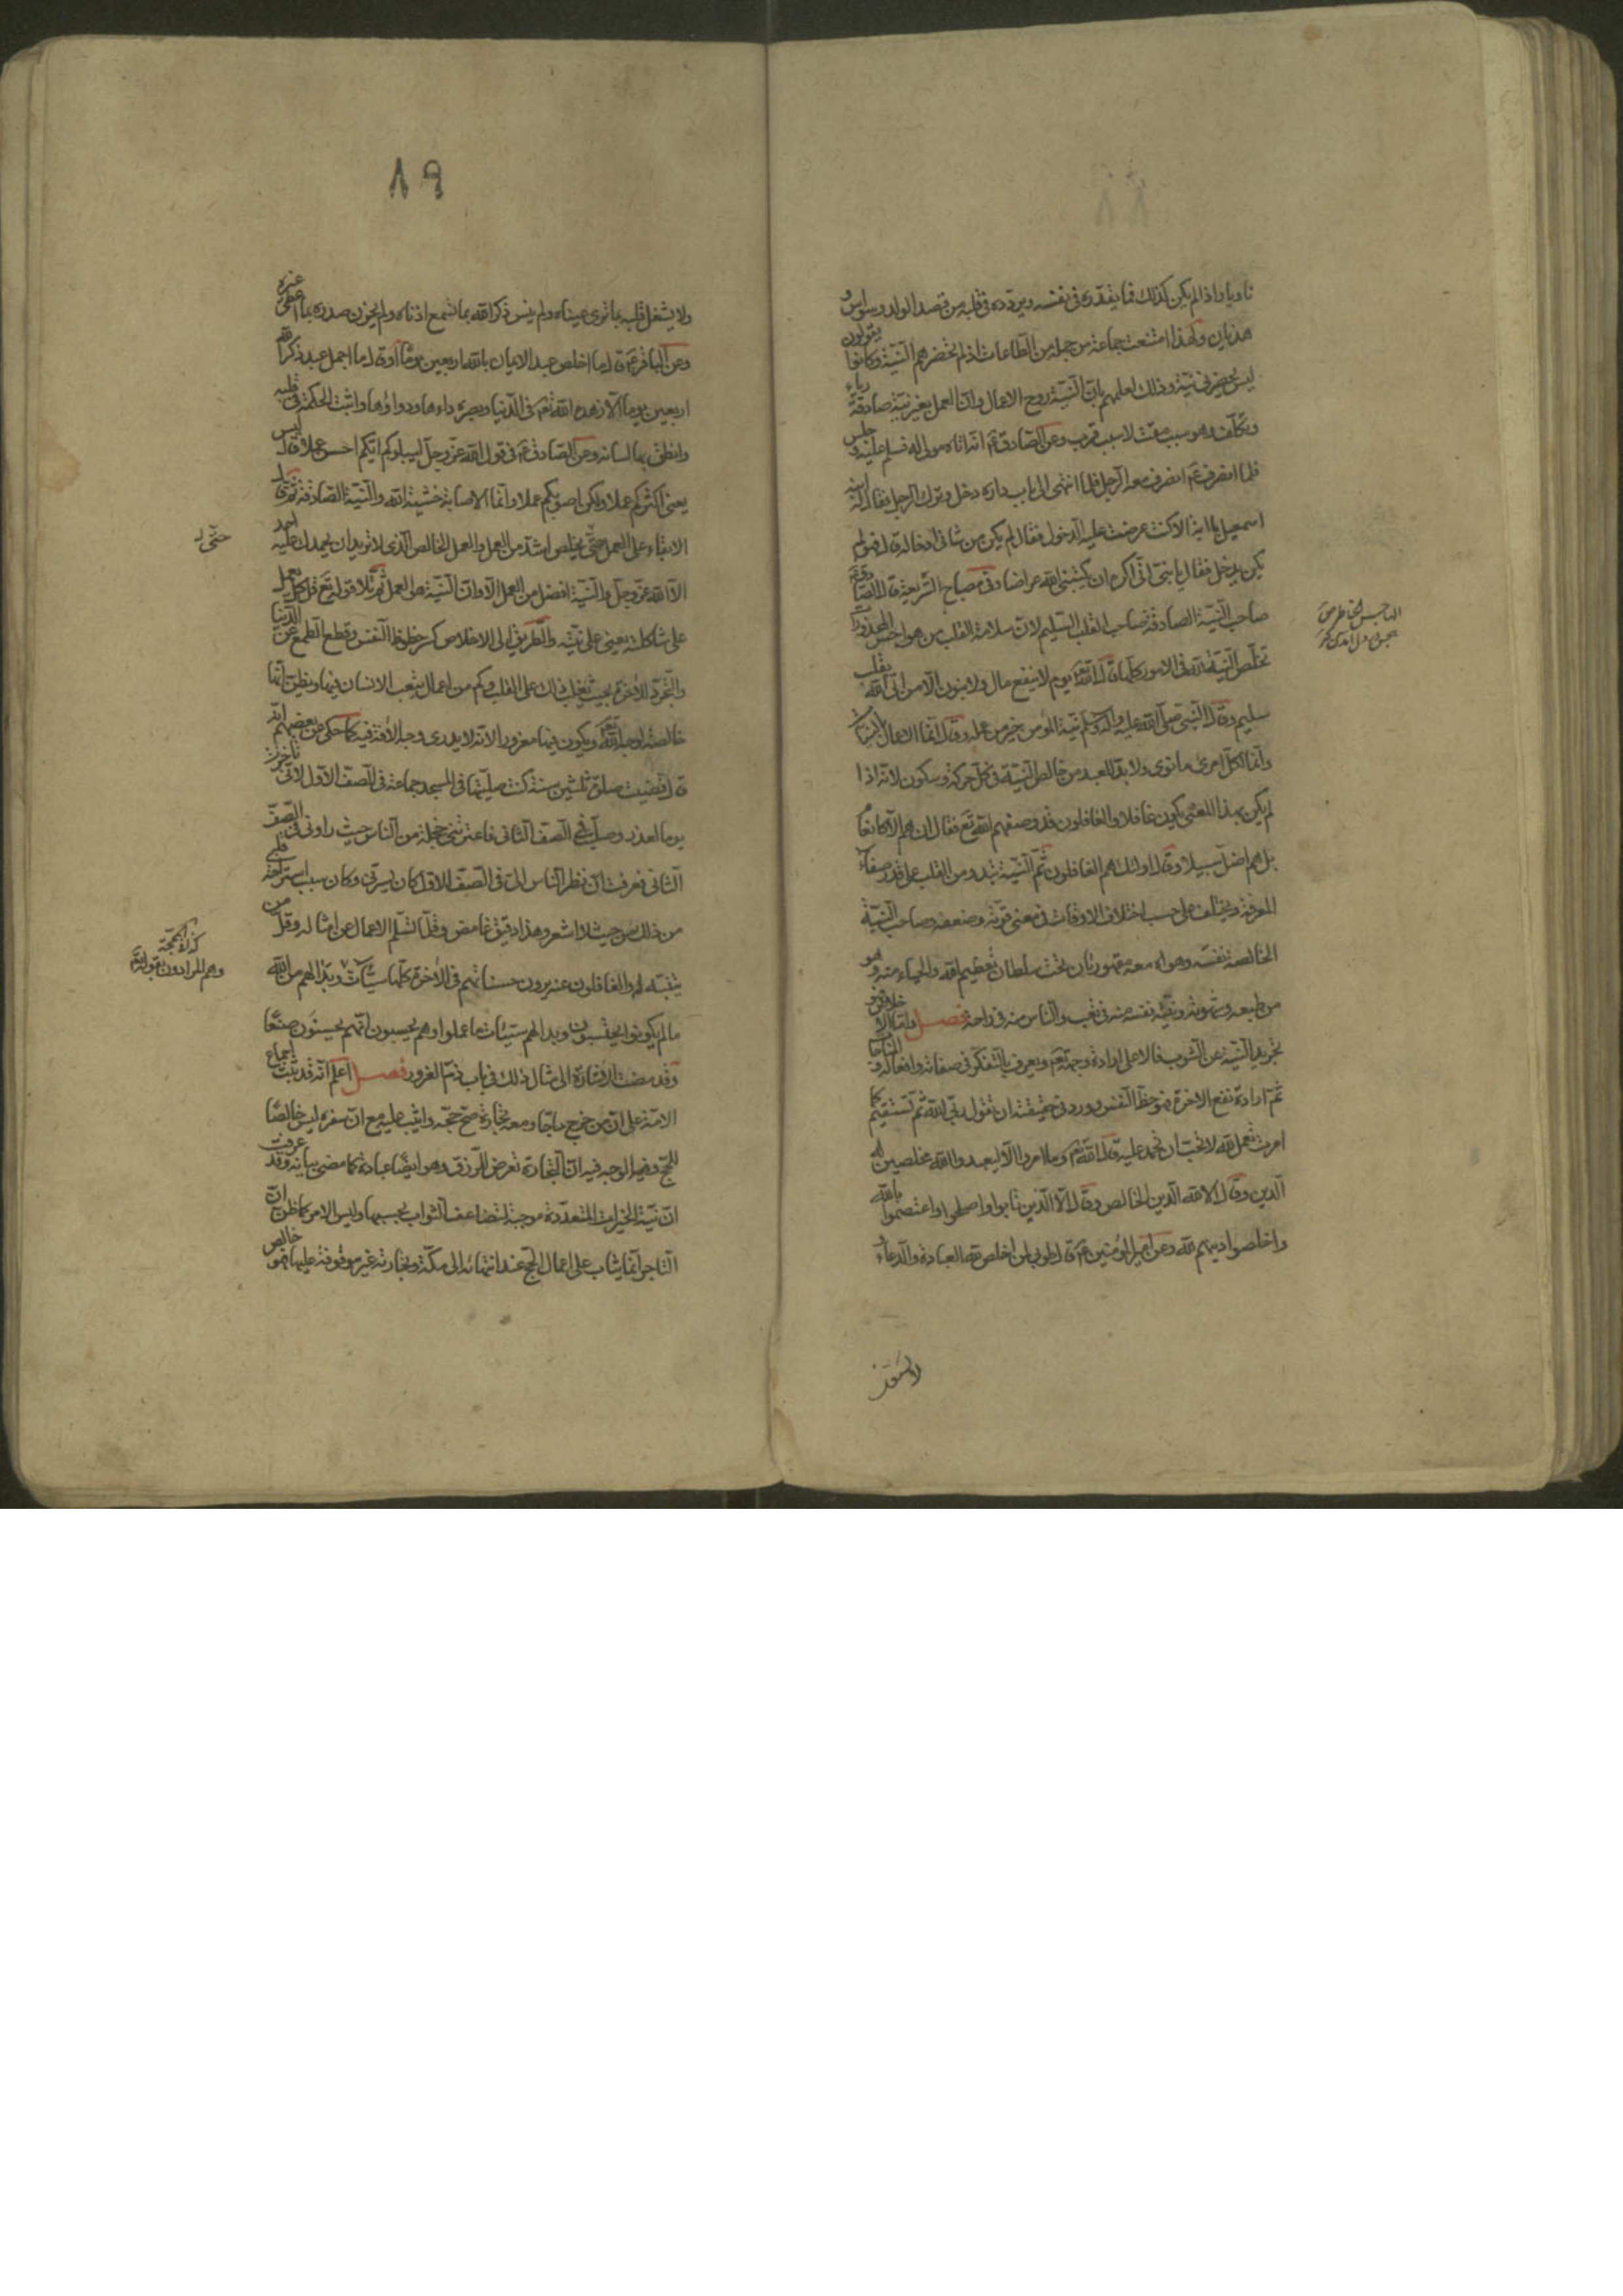 ٨٨
ناويا واذا لم يكن كذلك فما يقدره فى نفسه ويردده فى قلبه من قصد الولد وسواس و
هذيان ولهذا امتنعت جماعة من جملة من الطاعات اذ لم تحضرهم النية وكانوا يقولون
ليس يحضرنى نية وذلك لعلمهم بان النية روح الاعمال وان العمل بغير نية صادقة رياء
وتكلف وهو سبب مقت لا سبب قرب وعن الصادق ع انه اتاه مولى له فسلم عليه و جلس
فلما انصرف ع انصرف معه الرجل فلما انتهى الى باب داره دخل وترك الرجل فقال له ابنه
اسمعيل يا ابة الا كنت عرضت عليه الدخول فقال لم يكن من شانى ادخاله قال فهو لم
يكن يدخل فقال يا بنى انى اكره ان يكتبنى الله عراضا وفى مصباح الشريعة قال الصادق ع
صاحب النية الصادقة صاحب القلب السليم لان سلامة القلب من هواجس المحذورات
تخلص النية لله فى الامور كلها قال الله تع يوم لا ينفع مال ولا بنون الا من اتى الله بقلب
سليم وقال النبى صلى الله عليه واله وسلم نية المؤمن خير من عمله وقال انما الاعمال بالنيات
وانما لكل امرئ ما نوى ولا بد للعبد من خالص النية فى كل حركة وسكون لانه اذا
لم يكن بهذا المعنى يكون غافلا والغافلون قد وصفهم الله تع فقال ان هم الا كالانعام
بل هم اضل سبيلا وقال اولئك هم الغافلون ثم النية تبدو من القلب على قدر صفاء
المعرفة ويختلف على حسب اختلاف الاوقات فى معنى قوته وضعفه وصاحب النية
الخالصة نفسه وهواه معه مقهورتان تحت سلطان تعظيم الله والحياء منه وهو
من طبعه وشهوته ونيته نفسه منه فى تعب والناس منه فى راحة فصل
تجريد النية عن الشوب فالاعلى ارادة وجهه تع ويعرف بالتفكر فى صفاته وافعاله و
ثم ارادة نفع الاخرة فهو حظ النفس وورد فى حقيقته ان تقول ربى الله ثم تستقيم كما
امرت تعمل لله لا تحب ان تحمد عليه قال الله تع وما امروا الا ليعبدوا الله مخلصين له
الدين وقال الا لله الدين الخالص وقال الا الذين تابوا واصلحوا واعتصموا بالله
واخلصوا دينهم لله وعن امير المؤمنين ع قال طوبى لمن اخلص لله العبادة والدعاء و
ولا يشغل
٨٩
ولا يشغل قلبه بما ترى عيناه ولم ينس ذكر الله بما تسمع اذناه ولم يحزن صدره بما اعطى غيره
وعن الباقر ع قال ما اخلص عبد الايمان بالله اربعين يوما او قال ما اجمل عبد ذكر الله
اربعين يوما الا زهده الله تع فى الدنيا وبصره داءها ودواؤها واثبت الحكمة فى قلبه
وانطق بها لسانه وعن الصادق ع فى قول الله عز وجل ليبلوكم ايكم احسن عملا قال ليس
يعنى اكثركم عملا ولكن اصوبكم عملا وانما الاصابة خشية الله والنية الصادقة ثم قال
الابقاء على العمل حتى يخلص اشد من العمل والعمل الخالص الذى لا تريد ان يحمدك عليه احد
الا الله عز وجل والنية افضل من العمل الا وان النية هى العمل ثم تلا قوله تع قل كل يعمل
على شاكلته يعنى على نيته والطريق الى الاخلاص كسر حظوظ النفس وقطع الطمع عن الدنيا
والتجرد للاخرة بحيث يغلب ذلك على القلب وكم من اعمال يتعب الانسان فيها ويظن انها
خالصة لوجه الله تع ويكون فيها مغرورا لانه لا يدرى وجه الافة فيه كما حكى عن بعضهم انه
قال قضيت صلوة ثلثين سنة كنت صليتها فى المسجد جماعة فى الصف الاول لانى تاخرت
يوما لعذر وصليت فى الصف الثانى فاعترتنى خجلة من الناس حيث راونى فى الصف
الثانى فعرفت ان نظر الناس الى فى الصف الاول كان يسرنى وكان سبب استراحة قلبى
من ذلك من حيث لا اشعر وهذا دقيق غامض وقلما تسلم الاعمال عن امثاله وقل من
يتنبه له والغافلون عنه يرون حسناتهم فى الاخرة كلها سيئات وبدا لهم من الله
ما لم يكونوا يحتسبون وبدا لهم سيئات ما عملوا وهم يحسبون انهم يحسنون صنعا
وقد مضت الاشارة الى مثال ذلك فى باب ذم الغرور فصل اعلم انه قد ثبت اجماع
الامة على ان من خرج حاجا ومعه تجارة صح حجه واثيب عليه مع ان سفره ليس خالصا
للحج وفيه الوجه فيه ان التجارة تعرض للرزق وهو ايضا عبادة كما مضى بيانه وقد عرفت
ان نية الخيرات المتعددة موجبة لتضاعف الثواب بحسبها وليس الامر كما ظن ان
التاجر انما يثاب على اعمال الحج عند انتهائه الى مكة وتجارته غير موقوفة عليها فهو خالص
حتى
كذا فى المحجة
وهم المرادون بقوله تع